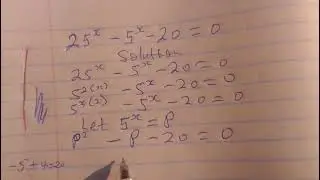 25ˣ - 5ˣ - 20 = 0
Solution
25ˣ - 5ˣ - 20 = 0
5²⁽ˣ⁾ - 5ˣ - 20 = 0
5ˣ⁽²⁾ - 5ˣ - 20 = 0
Let 5ˣ = P
P² - P - 20 = 0
-5 + 4 = 20